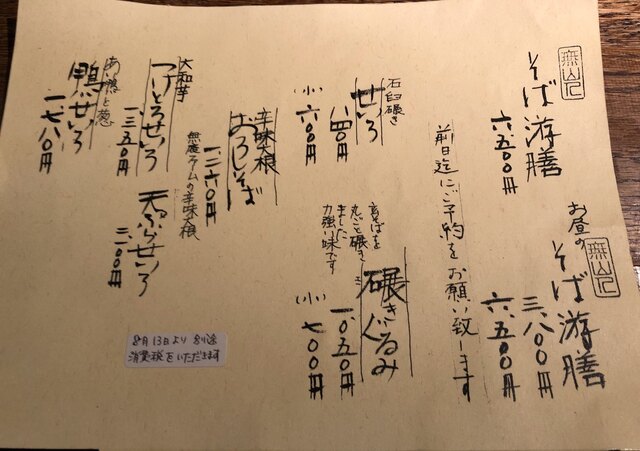 無山
そば游膳
六、五〇〇円
お昼の
そば游膳
三、八〇〇円
六、五〇〇円
前日迄にご予約をお願い致します
石臼碾き
せいろ
八四〇円
(小)六〇〇円
碾きぐるみ
玄そばを
丸ごと碾き
ました
力強い味です
一、〇五〇円
(小)七〇〇円
辛味大根
おろしそば
一、二六〇円
無農ファームの辛味大根
大和芋
つけとろせいろ
一、三五〇円
天ぷらせいろ
あい鴨と葱
鴨せいろ
一、七八〇円
8月13日より 別途
消費税をいただきます